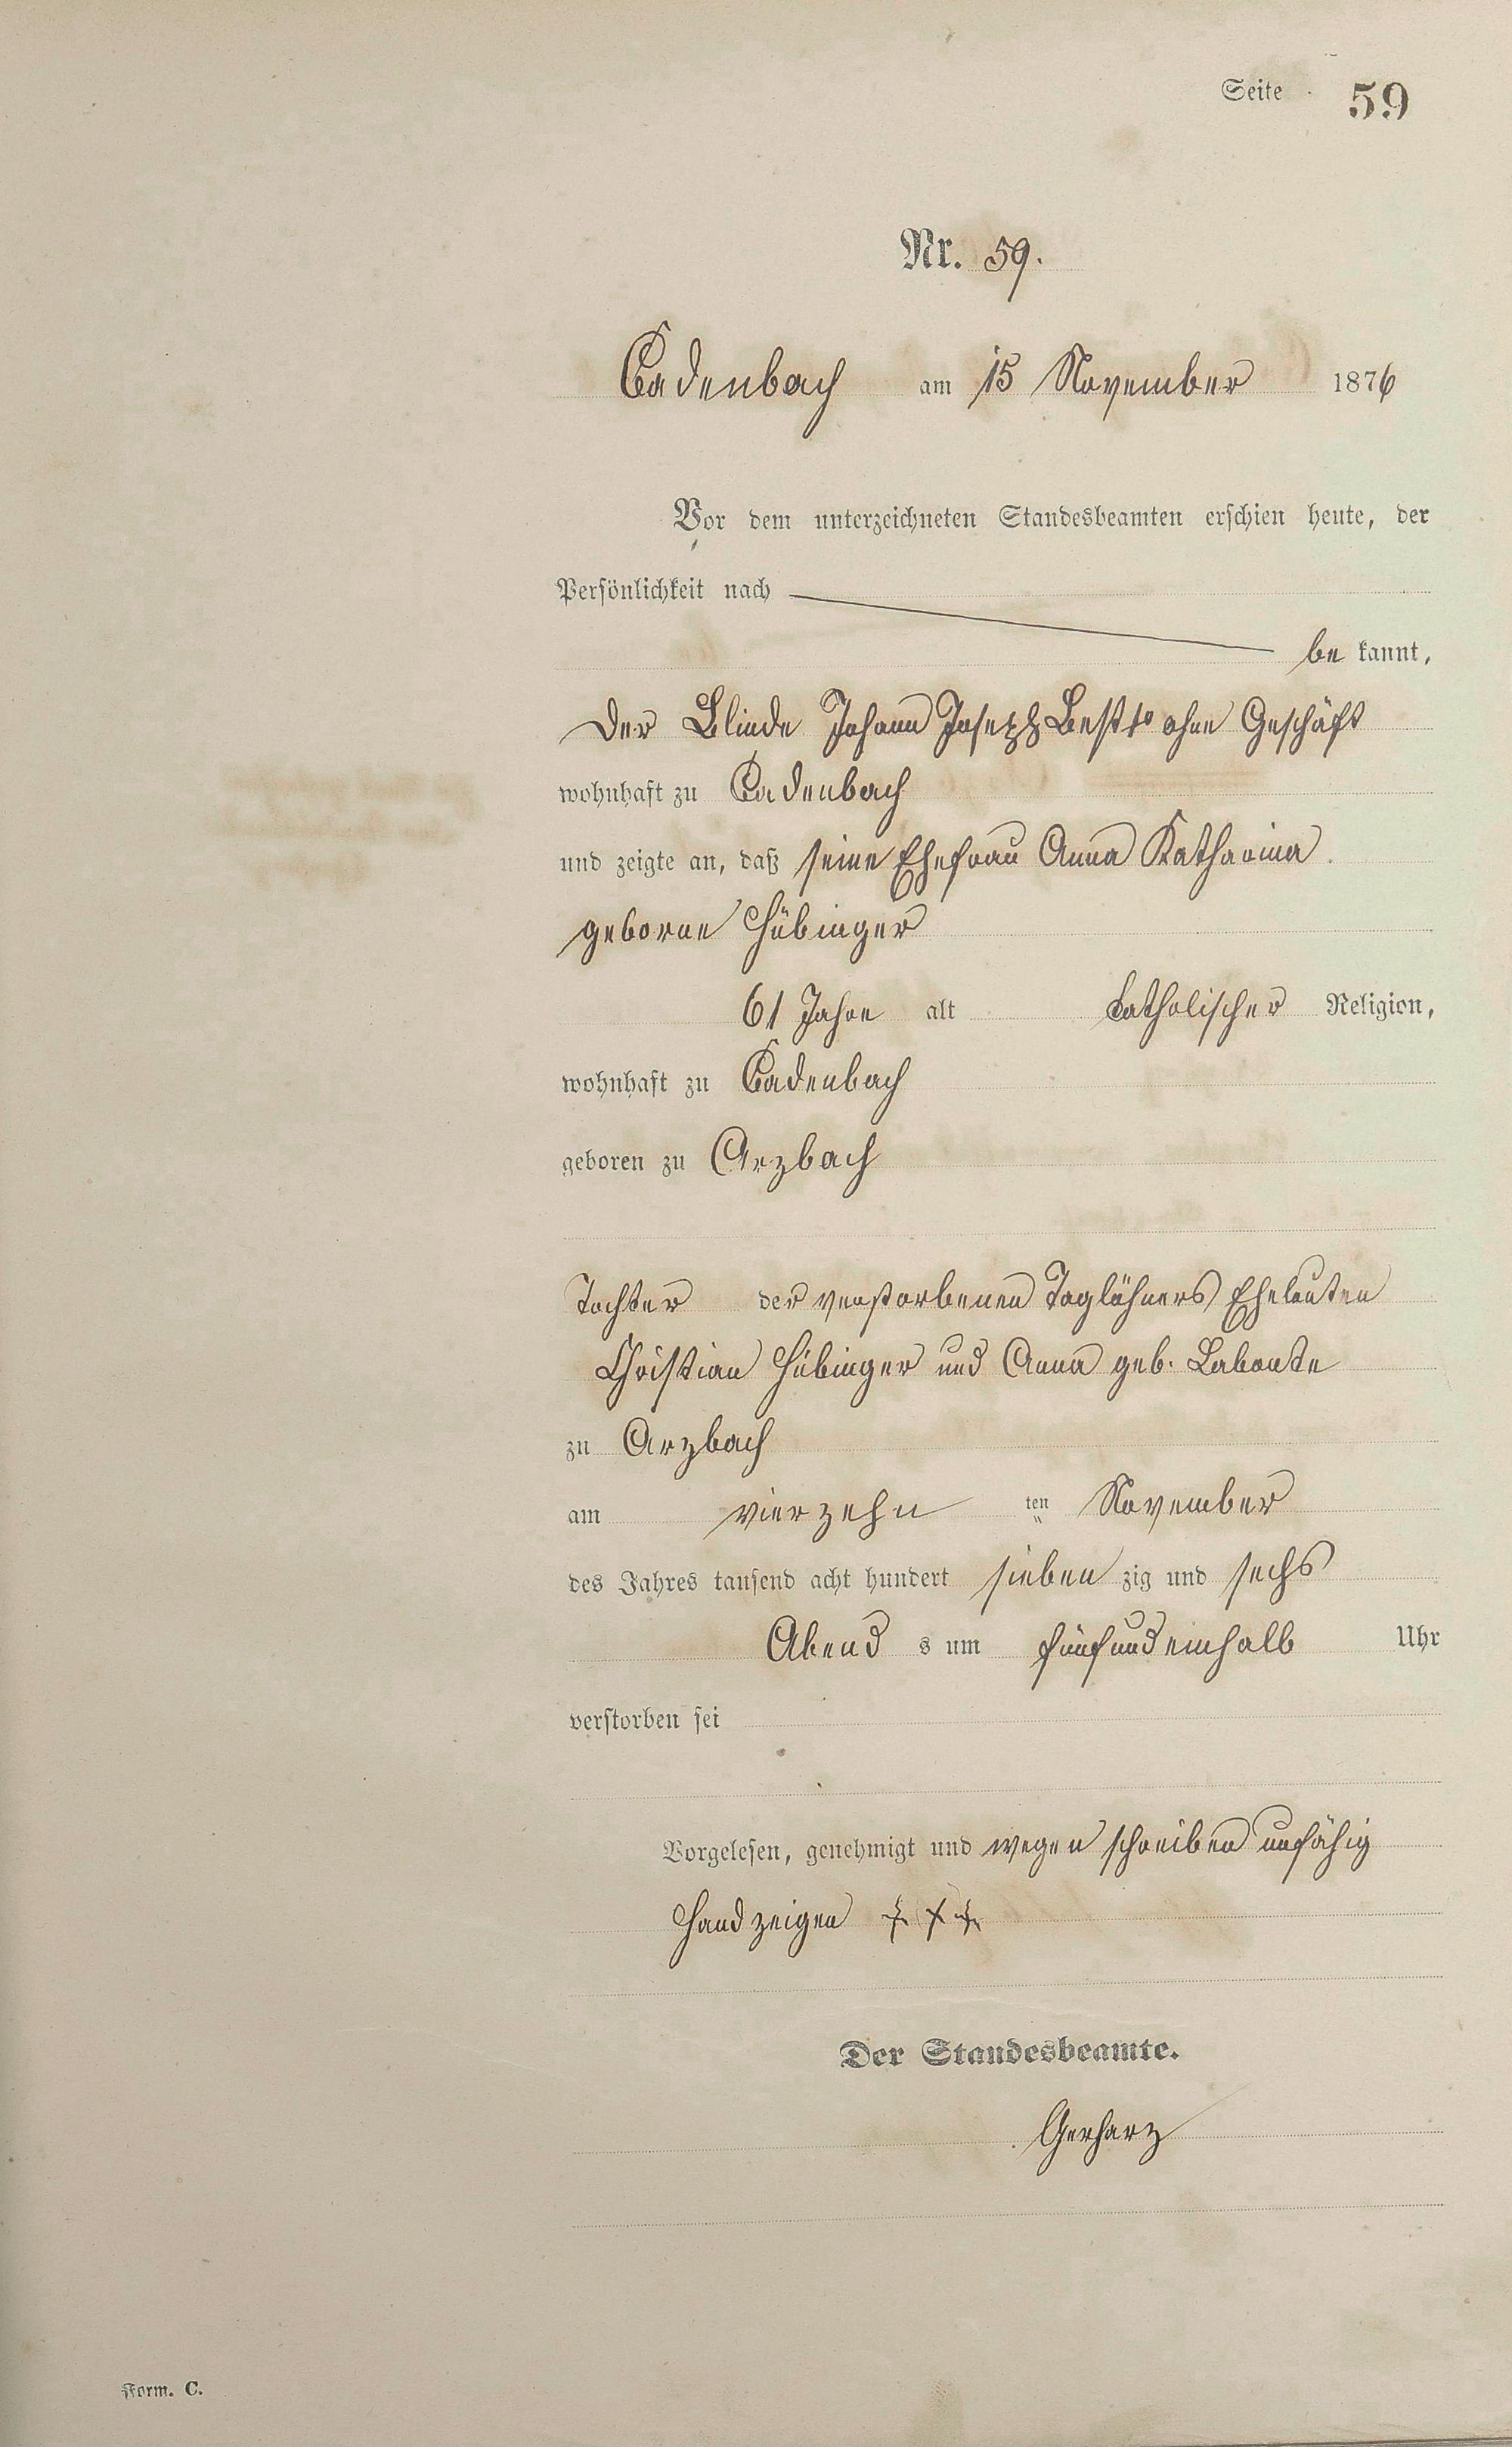 Seite 59
Nr. 59.
Cadenbach am 15 November 1876
Vor dem unterzeichneten Standesbeamten erschien heute, der
Persönlichkeit nach
be kannt,
der Blinde Johann Joseph ohne Geschäft
wohnhaft zu Cadenbach
und zeigte an, daß seine Ehefrau Anna Katharina
geborne Hübinger
61 Jahre alt katholischer Religion,
wohnhaft zu Cadenbach
geboren zu Arzbach
Tochter der verstorbenen Taglöhners Eheleuten
Christian Hübinger und Anna geb. Labonte
zu Arzbach
am vierzehn ten November
des Jahres tausend acht hundert sieben zig und sechs
Abend s um fünfundeinhalb Uhr
verstorben sei
Vorgelesen, genehmigt und wegen schreiben unfähig
Handzeigen + + +
Der Standesbeamte.
Gerharz
Form. C.